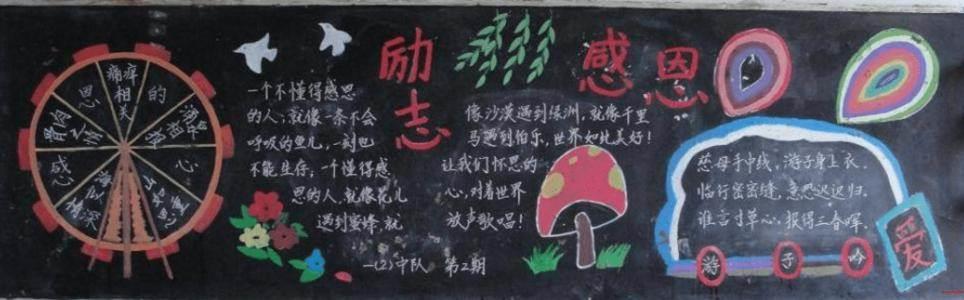 励志
感恩
痛痒
相
关
的
心
骨肉
之情
感
一个不懂得感恩
的人，就像一条不会
呼吸的鱼儿，一刻也
不能生存；一个懂得感
恩的人，就像花儿
遇到蜜蜂，就
像沙漠遇到绿洲，就像千里
马遇到伯乐，世界如此美好！
让我们怀恩的
心，对着世界
放声歌唱！
一(2)中队 第2期
慈母手中线，游子身上衣。
临行密密缝，意恐迟迟归。
谁言寸草心，报得三春晖。
游子吟
爱